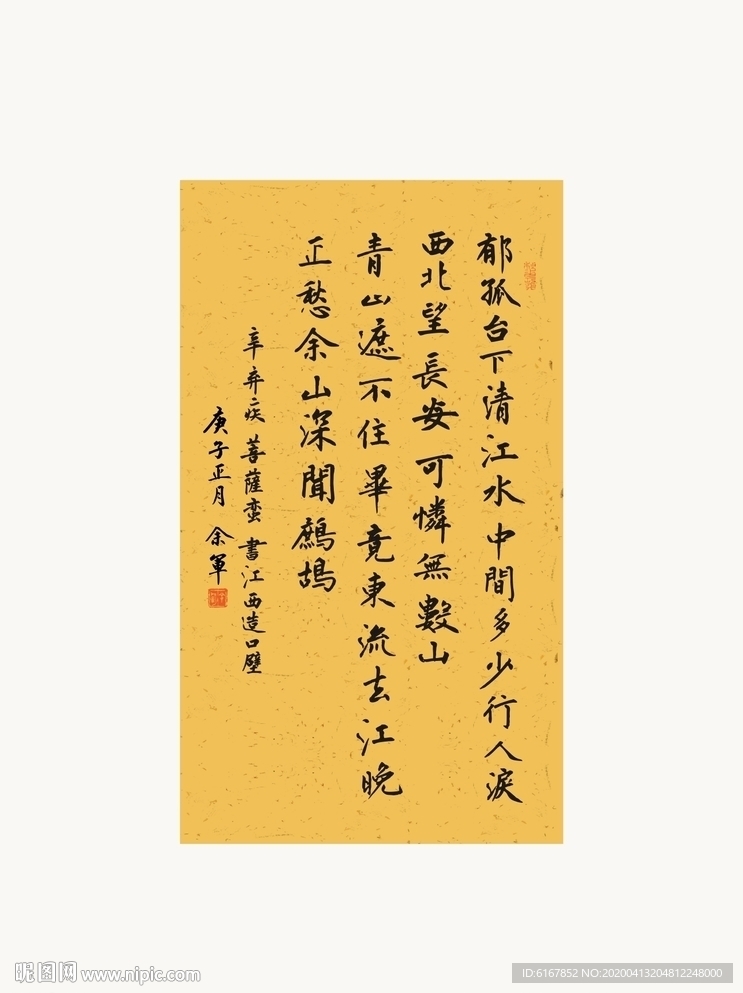 郁孤台下清江水中間多少行人淚
西北望長安可憐無數山
青山遮不住畢竟東流去江晚
正愁余山深聞鷓鴣
辛弃疾菩薩蛮 書江西造口壁
庚子正月 余軍
昵图网 www.nipic.com
ID:6167852 NO:20200413204812248000